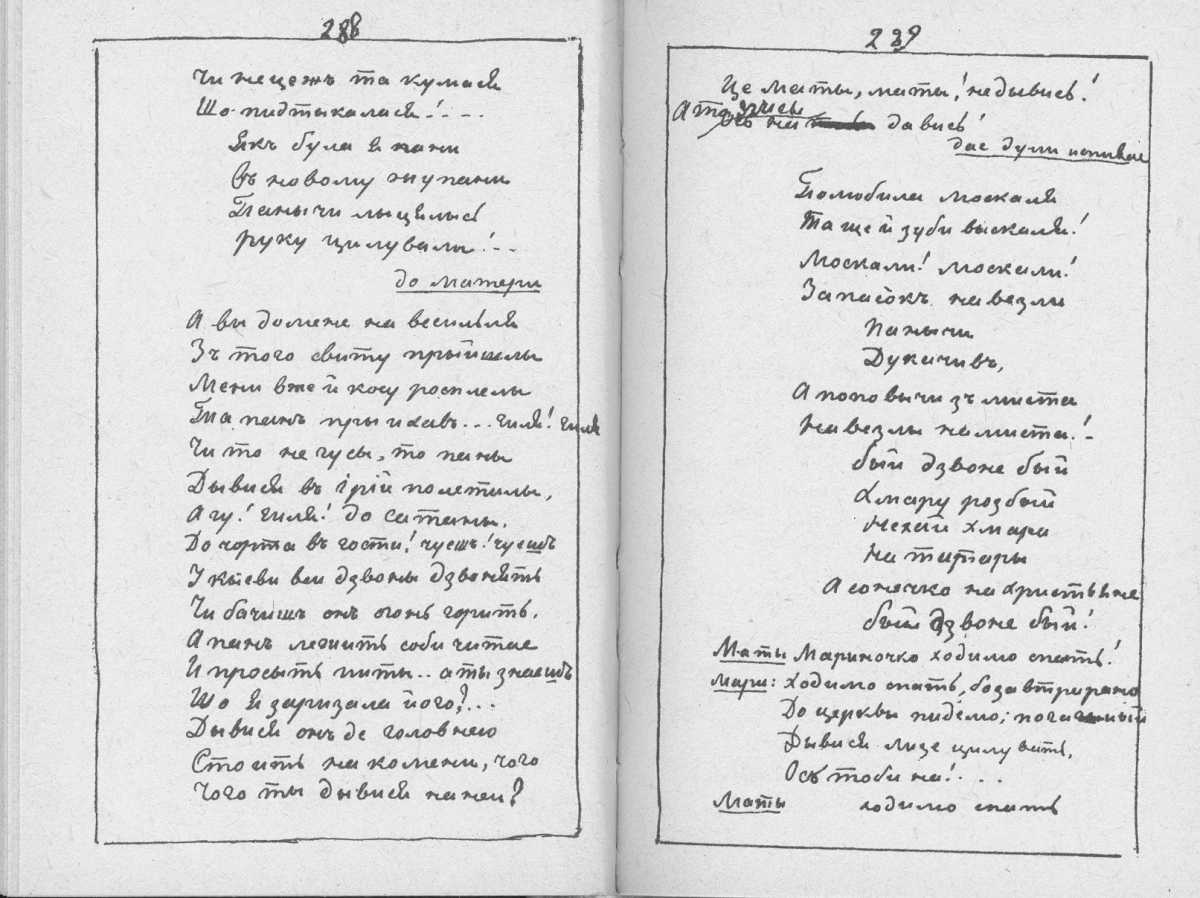 288
Чи не це жъ та кумася
Що пидтыкалася!...
Якъ була я пани
Въ новому жупани
Панычи лыцялысь
руку цилувалы!..
до матери
А ви до мене на весилля
Зъ того свиту прыйшлы
Мени вже й косу росплелы
Та панъ прыихавъ... гиля! гиля
Чи то не гусы, то паны
Дывися въ ірій полетилы,
Агу! гиля! до сатаны.
До чорта въ гости! чуешъ! чуешъ
У кыеви вси дзвоны дзвонять
Чи бачишъ онъ огонь горить.
А панъ лежить соби читае
И просыть пыты.. а ты знаешъ
Що я заризала його?...
Дывися онъ де головнею
Стоить на комени, чого
Чого ты дывися на неи?
239
Це маты, маты! не дывись!
А то зъисы
на давись!
дае дули и спивае
Полюбила москаля
Та ще й зуби выскаля!
Москали! москали!
Запасокъ навезли
Панычи
Дукачивъ,
А поповычи зъ миста
Навезлы намиста!-
Бый дзвоне бый
Хмару розбый
Нехай хмара
На татары
А сонечко на христыяне
Бый дзвоне бый!
Маты Мариночко ходимо спать!
Мари: Ходимо спать, бо завтра рано
До церквы пидемо; поганый
Дывися лизе цилувать.
Ось тоби на!...
Маты ходимо спать